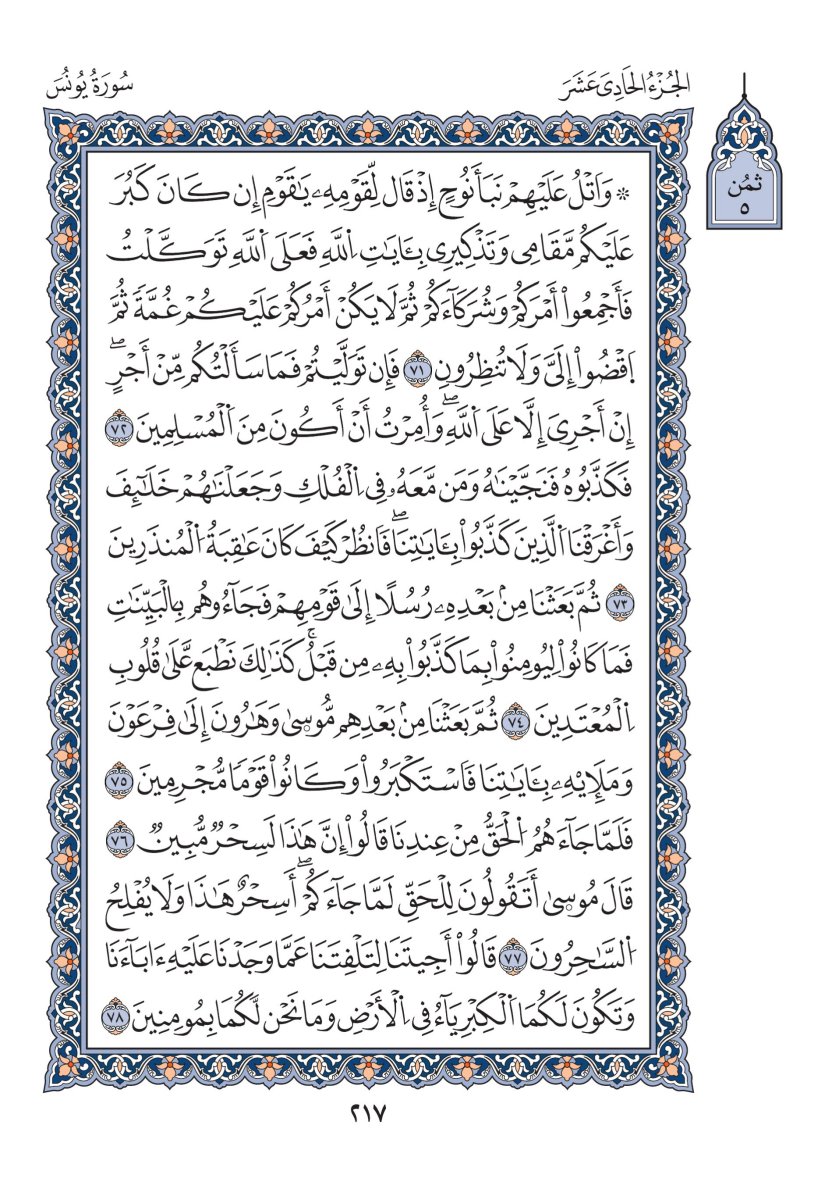 سُورَةُ يُونُسَ
الجُزْءُ الحَادِي عَشَرَ
ثمُن
٥
۞ وَاَتْلُ عَلَيْهِمْ نَبَأَ نُوحٍ إِذْ قَال لِّقَوْمِهِۦ يَٰقَوْمِ إِن كَانَ كَبُرَ
عَلَيْكُم مَّقَامِى وَتَذْكِيرِى بِـَٔايَٰتِ اِللَّهِ فَعَلَى اَللَّهِ تَوَكَّلْتُ
فَأَجْمِعُواْ أَمْرَكُمْ وَشُرَكَآءَكُمْ ثُمَّ لَا يَكُنْ أَمْرُكُمْ عَلَيْكُمْ غُمَّةً ثُمَّ
اَقْضُواْ إِلَىَّ وَلَا تُنظِرُونِ ٧١ فَإِن تَوَلَّيْتُمْ فَمَا سَأَلْتُكُم مِّنْ أَجْرٍۖ
إِنْ أَجْرِىَ إِلَّا عَلَى اَللَّهِۖ وَأُمِرْتُ أَنْ أَكُونَ مِنَ اَلْمُسْلِمِينَ ٧٢
فَكَذَّبُوهُ فَنَجَّيْنَٰهُ وَمَن مَّعَهُۥ فِى اِلْفُلْكِ وَجَعَلْنَٰهُمْ خَلَٰٓئِفَ
وَأَغْرَقْنَا اَلَّذِينَ كَذَّبُواْ بِـَٔايَٰتِنَاۖ فَانظُرْ كَيْفَ كَانَ عَٰقِبَةُ اُلْمُنذَرِينَ
٧٣ ثُمَّ بَعَثْنَا مِنۢ بَعْدِهِۦ رُسُلًا إِلَىٰ قَوْمِهِمْ فَجَآءُوهُم بِالْبَيِّنَٰتِ
فَمَا كَانُواْ لِيُومِنُواْ بِمَا كَذَّبُواْ بِهِۦ مِن قَبْلُۚ كَذَٰلِكَ نَطْبَع عَّلَىٰ قُلُوبِ
اِلْمُعْتَدِينَ ٧٤ ثُمَّ بَعَثْنَا مِنۢ بَعْدِهِم مُّوسِىٰ وَهَٰرُونَ إِلَىٰ فِرْعَوْنَ
وَمَلَإِيْهِۦ بِـَٔايَٰتِنَا فَاسْتَكْبَرُواْ وَكَانُواْ قَوْمًا مُّجْرِمِينَ ٧٥
فَلَمَّا جَآءَهُمُ اُلْحَقُّ مِنْ عِندِنَا قَالُواْ إِنَّ هَٰذَا لَسِحْرٌ مُّبِينٌ ٧٦
قَالَ مُوسِىٰ أَتَقُولُونَ لِلْحَقِّ لَمَّا جَآءَكُمْۖ أَسِحْرٌ هَٰذَا وَلَا يُفْلِحُ
اُلسَّٰحِرُونَ ٧٧ قَالُواْ أَجِيتَنَا لِتَلْفِتَنَا عَمَّا وَجَدْنَا عَلَيْهِ ءَابَآءَنَا
وَتَكُونَ لَكُمَا اَلْكِبْرِيَآءُ فِى اِلْأَرْضِ وَمَا نَحْن لَّكُمَا بِمُومِنِينَ ٧٨
٢١٧